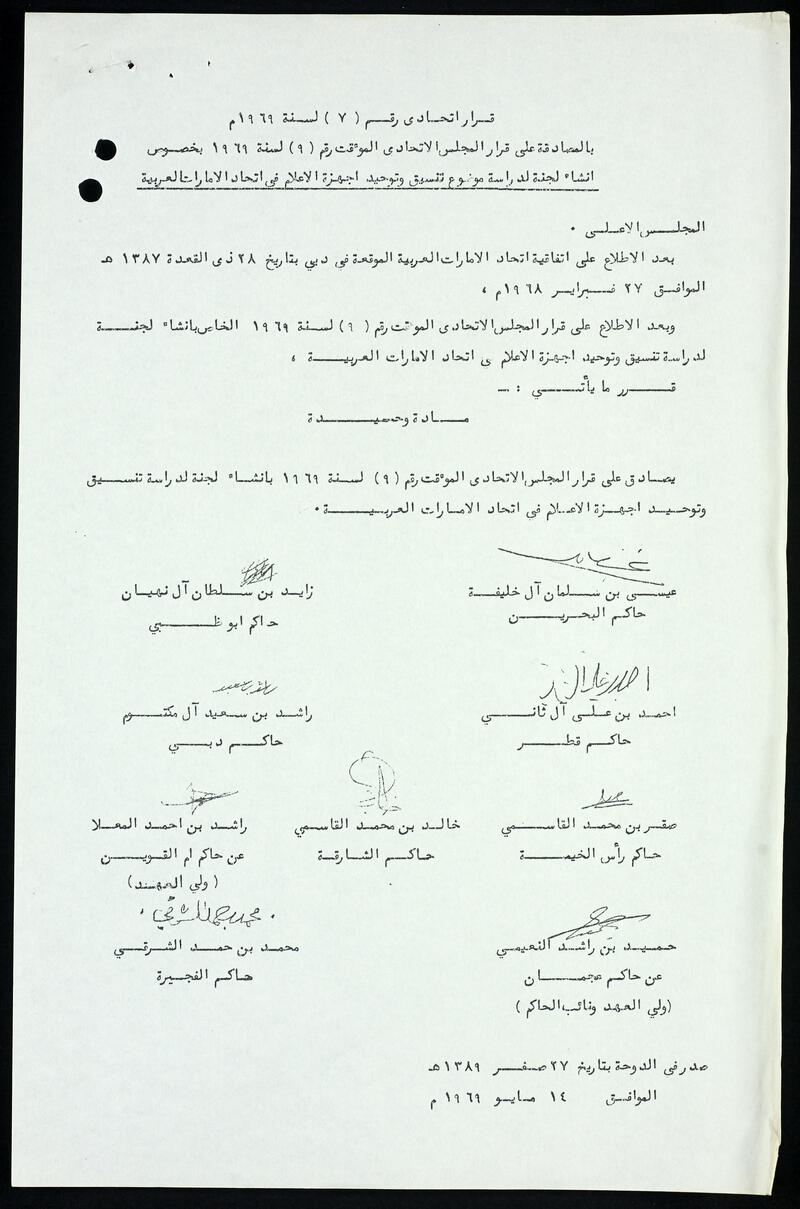 قرار اتحادى رقم ( ٧ ) لسنة ١٩٦٩م
بالمصادقة على قرار المجلس الاتحادى الموقت رقم (٩) لسنة ١٩٦٩ بخصوص
انشاء لجنة لدراسة موضوع تنسيق وتوحيد اجهزة الاعلام فى اتحاد الامارات العربية
المجلس الاعلى ٠
بعد الاطلاع على اتفاقية اتحاد الامارات العربية الموقعة فى دبي بتاريخ ٢٨ ذى القعدة ١٣٨٧ هـ
الموافق ٢٧ فبراير ١٩٦٨م ،
وبعد الاطلاع على قرار المجلس الاتحادى الموقت رقم ( ٩) لسنة ١٩٦٩ الخاص بانشاء لجنة
لدراسة تنسيق وتوحيد اجهزة الاعلام ى اتحاد الامارات العربية ،
قرر ما يأتي : ــ
مادة وحيدة
يصادق على قرار المجلس الاتحادى الموقت رقم (٩) لسنة ١٩٦٩ بانشاء لجنة لدراسة تنسيق
وتوحيد اجهزة الاعلام فى اتحاد الامارات العربية ٠
عيسى بن سلمان آل خليفة زايد بن سلطان آل نهيان
حاكم البحرين حاكم ابو ظبي
راشد بن سعيد
احمد بن على آل ثاني راشد بن سعيد آل مكتوم
حاكم قطر حاكم دبي
صقر بن محمد القاسمي خالد بن محمد القاسمي راشد بن احمد المعلا
حاكم رأس الخيمة حاكم الشارقة عن حاكم ام القوين
(ولي العهد)
محمد بن حمد الشرقي
حميد بن راشد النعيمي محمد بن حمد الشرقي
عن حاكم عجمان حاكم الفجيرة
(ولي العهد ونائب الحاكم )
صدر فى الدوحة بتاريخ ٢٧ صفر ١٣٨٩ هـ
الموافق ١٤ مايو ١٩٦٩ م